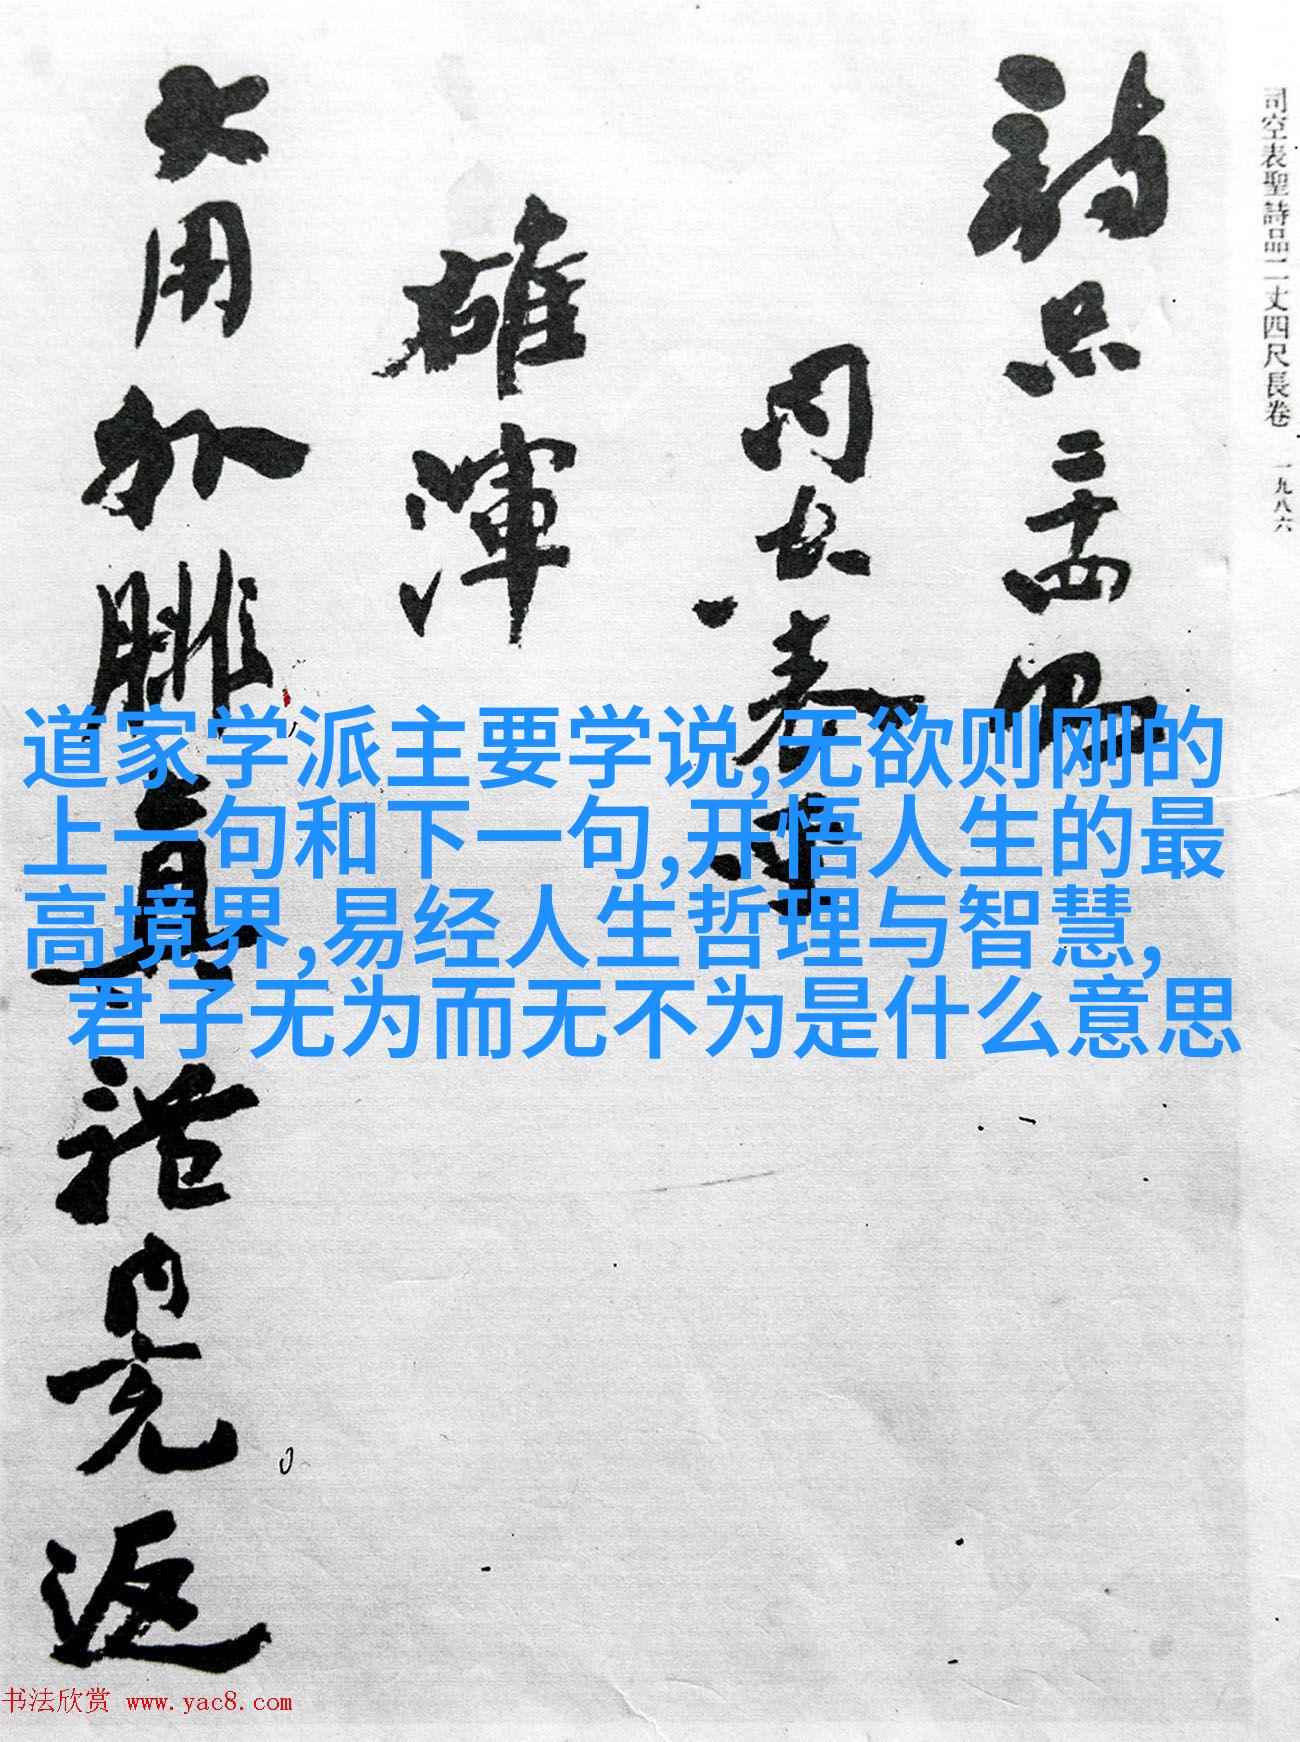 司空表聖詩品二丈四尺長卷 一九八六
詩品二十四偈
雄渾
大用外腓真體內充返
道家学派主要学说,无欲则刚的
上一句和下一句,开悟人生的最
高境界,易经人生哲理与智慧,
君子无为而无不为是什么意思
书法欣赏 www.yac8.com